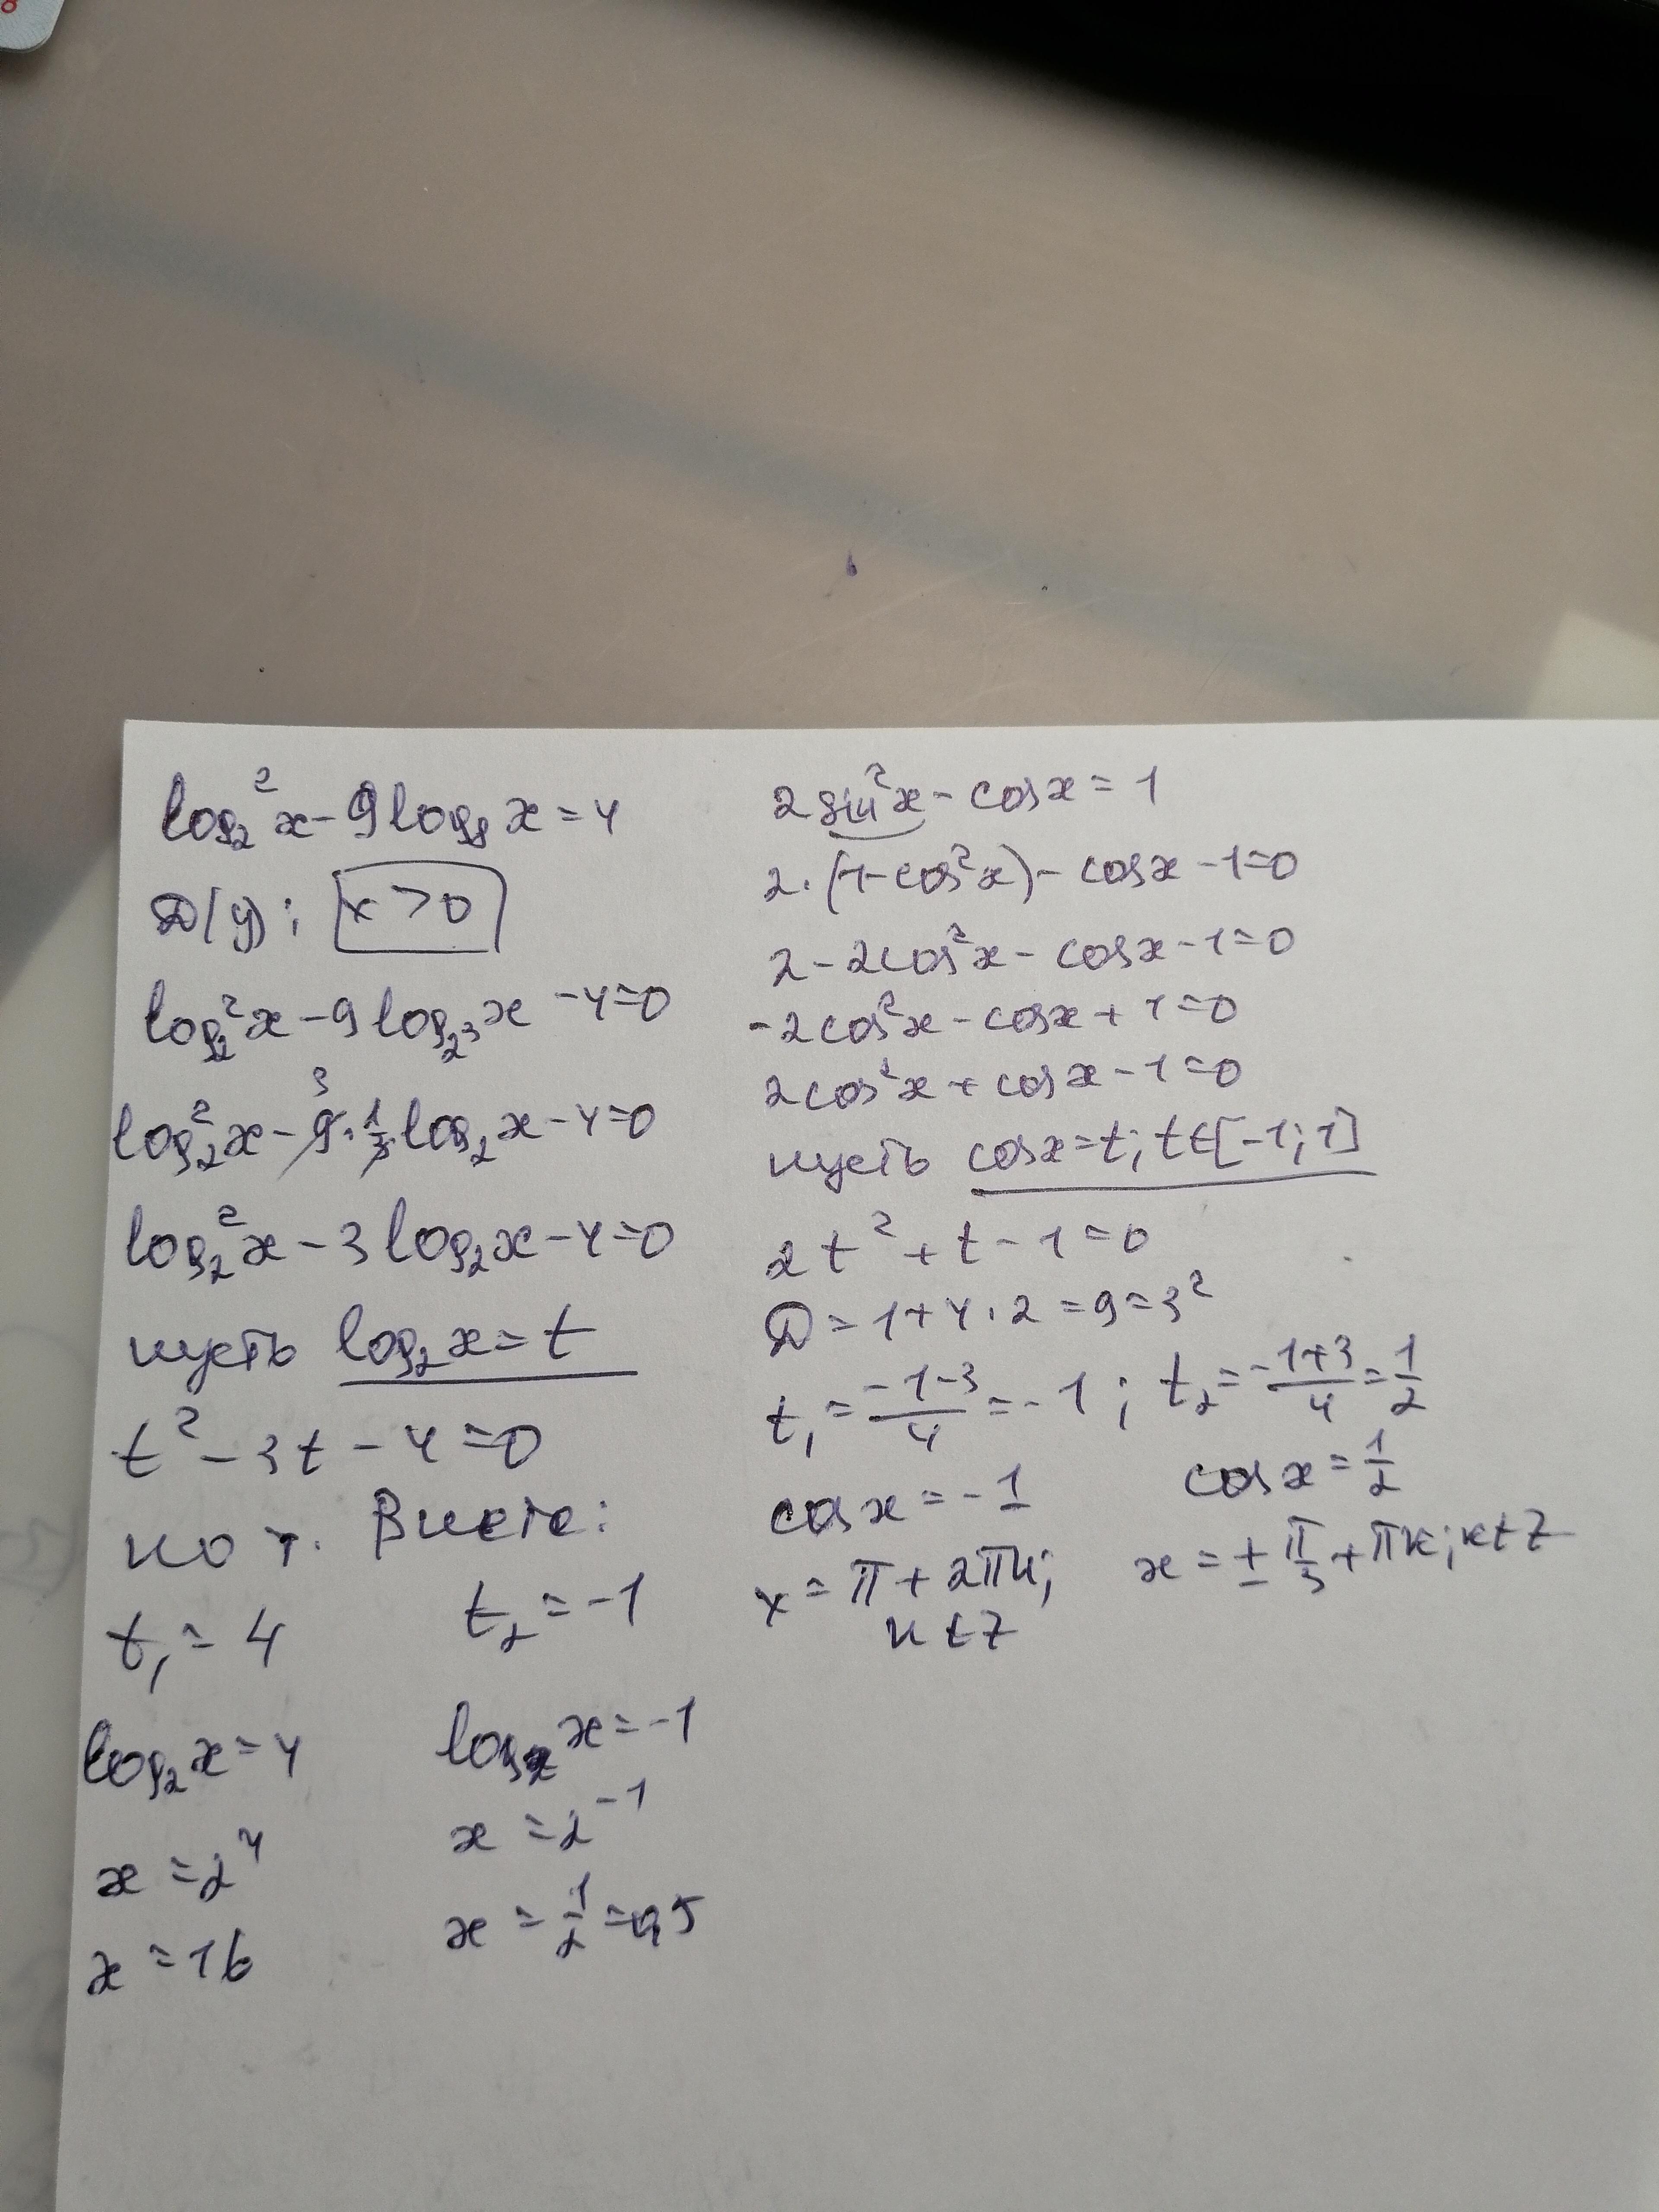 log₂²x - 9log₈x = 4
D(y): x > 0
log₂²x - 9log₂³x - 4 = 0
log₂²x - 9³·1/3·log₂x - 4 = 0
log₂²x - 3log₂x - 4 = 0
пусть log₂x = t
t² - 3t - 4 = 0
по т. Виета:
t₁ = 4 t₂ = -1
log₂x = 4 log₂x = -1
x = 2⁴ x = 2⁻¹
x = 16 x = 1/2 = 0,5
2sin²x - cosx = 1
2·(1-cos²x) - cosx - 1 = 0
2 - 2cos²x - cosx - 1 = 0
-2cos²x - cosx + 1 = 0
2cos²x + cosx - 1 = 0
пусть cosx = t; t∈[-1;1]
2t² + t - 1 = 0
D = 1 + 4·2 = 9 = 3²
t₁ = (-1-3)/4 = -1; t₂ = (-1+3)/4 = 1/2
cosx = -1 cosx = 1/2
x = π + 2πk; x = ± π/3 + πk; k∈Z
k∈Z